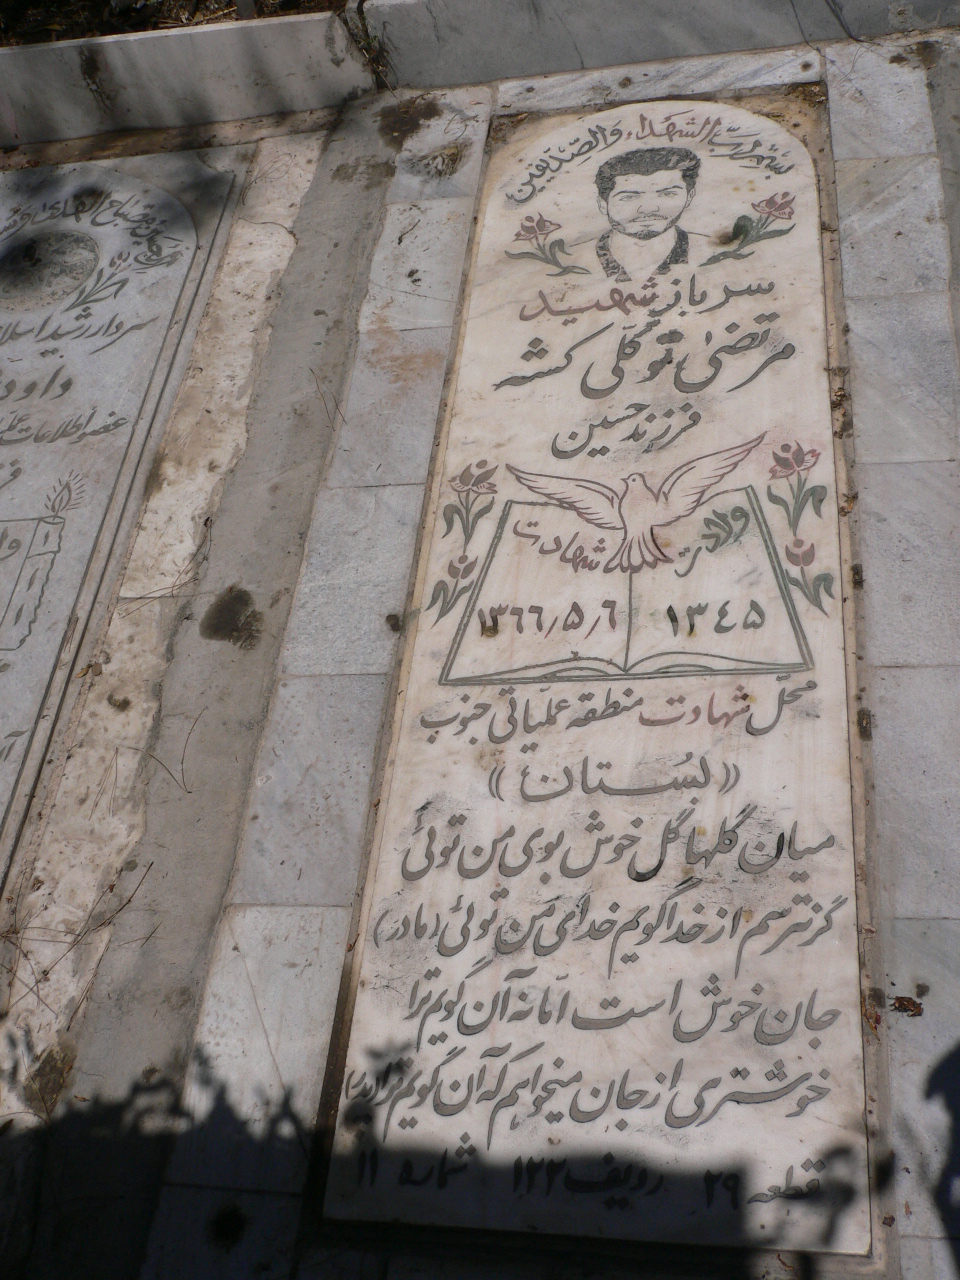 بسم رب الشهداء والصدیقین
سرباز شهید
مرتضیٰ توکّلی کشه
فرزند حسین
ولادت شهادت
۱۳۴۵ ۱۳۶۶/۵/۶
محلّ شهادت منطقه عملیّاتی جنوب
((بُستان))
میان گلها گل خوش بوی من توئی
گر نترسم از خدا گویم خدای من توئی (مادر)
جان خوش است امّا نه آن گویم ترا
خوشتری از جان میخواهم که آن گویم ترا (پدر)
قطعه ۲۹ ردیف ۱۲۲ شماره ۱۱
سردار رشید اسلا
داود
عضو اطلاعات عملی